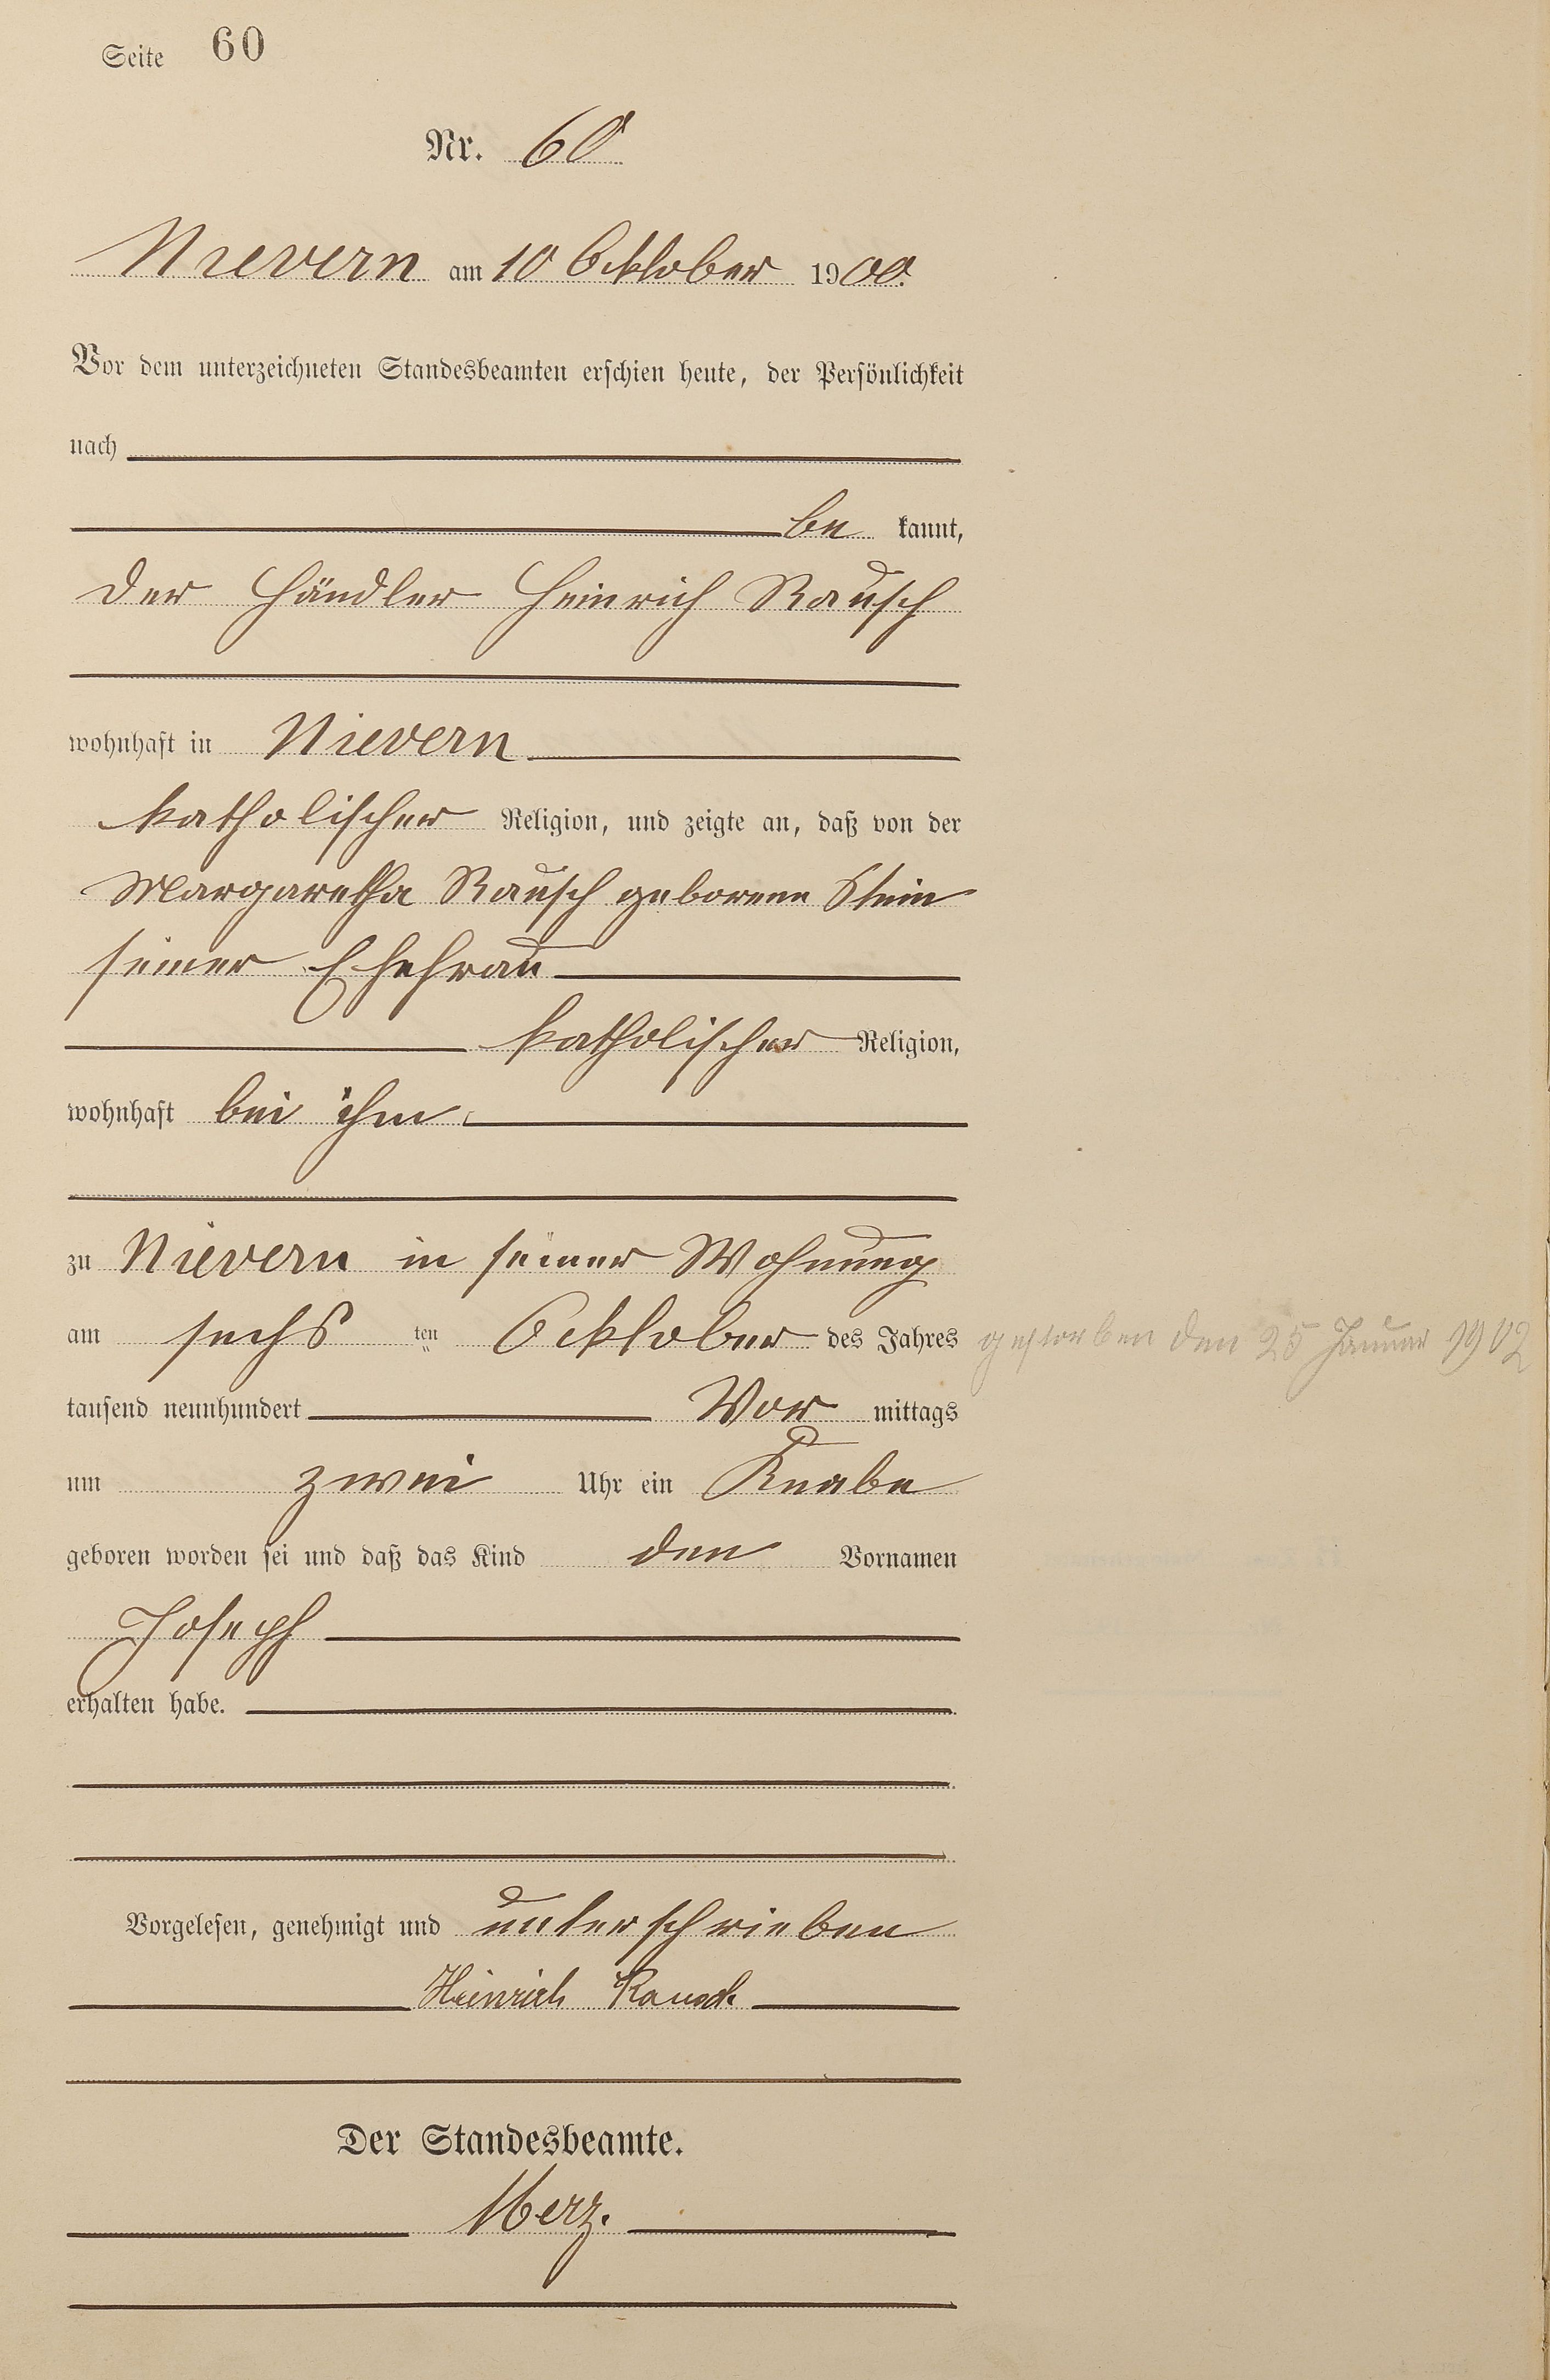 Seite 60
Nr. 60
Nievern am 10 Ocktober 1900.
Vor dem unterzeichneten Standesbeamten erschien heute, der Persönlichkeit
nach
be kannt,
der Händler Heinrich Rausch
wohnhaft in Nievern
katholischer Religion, und zeigte an, daß von der
Margaretha Rausch geborene Stein
seiner Ehefrau
katholischer Religion,
wohnhaft bei ihm
zu Nievern in seiner Wohnung
am sechs ten Ocktober des Jahres gestorben den 25 Januar 1902
tausend neunhundert Vor mittags
um zwei Uhr ein Knabe
geboren worden sei und daß das Kind den Vornamen
Joseph
erhalten habe.
Vorgelesen, genehmigt und unterschrieben
Heinrich Rausch
Der Standesbeamte.
Merz.